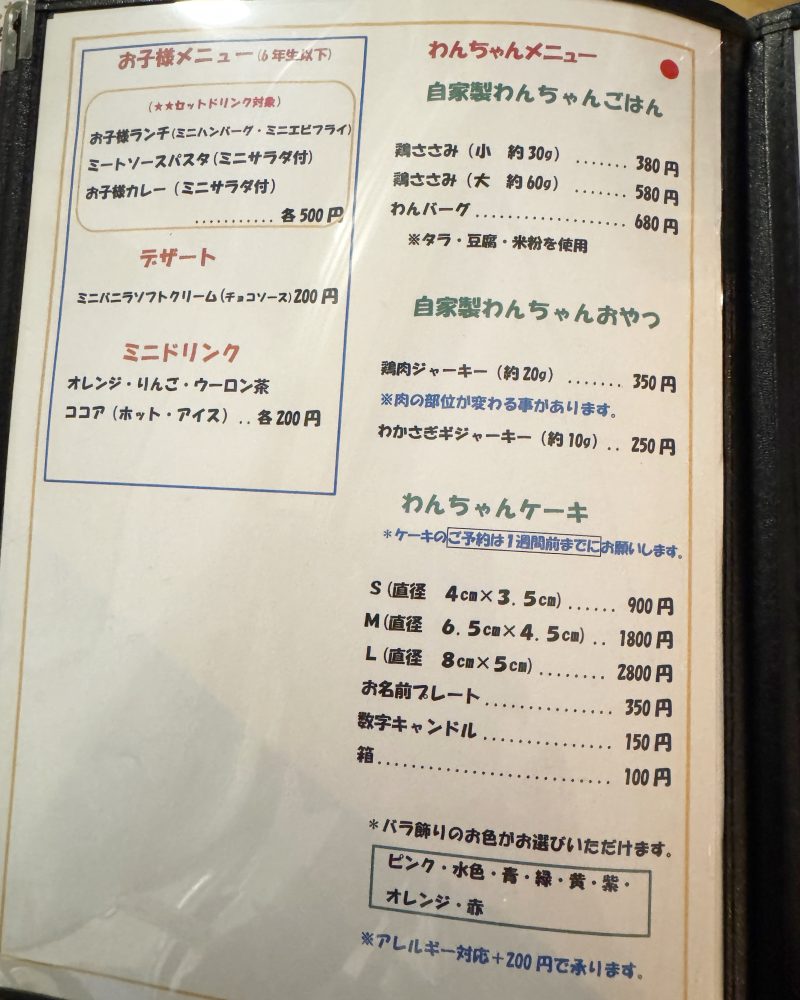 お子様メニュー(6年生以下)
(★★セットドリンク対象)
お子様ランチ(ミニハンバーグ・ミニエビフライ)
ミートソースパスタ(ミニサラダ付)
お子様カレー(ミニサラダ付)
...........各500円
デザート
ミニバニラソフトクリーム(チョコソース)200円
ミニドリンク
オレンジ・りんご・ウーロン茶
ココア(ホット・アイス)..各200円
わんちゃんメニュー
自家製わんちゃんごはん
鶏ささみ(小 約30g).......380円
鶏ささみ(大 約60g).......580円
わんバーグ...................680円
※タラ・豆腐・米粉を使用
自家製わんちゃんおやつ
鶏肉ジャーキー(約20g).......350円
※肉の部位が変わる事があります。
わかさぎギジャーキー(約10g)..250円
わんちゃんケーキ
*ケーキのご予約は1週間前までにお願いします。
S(直径 4㎝×3.5㎝)......900円
M(直径 6.5㎝×4.5㎝)..1800円
L(直径 8㎝×5㎝).........2800円
お名前プレート...............350円
数字キャンドル...............150円
箱...........................100円
*バラ飾りのお色がお選びいただけます。
ピンク・水色・青・緑・黄・紫・
オレンジ・赤
※アレルギー対応+200円で承ります。